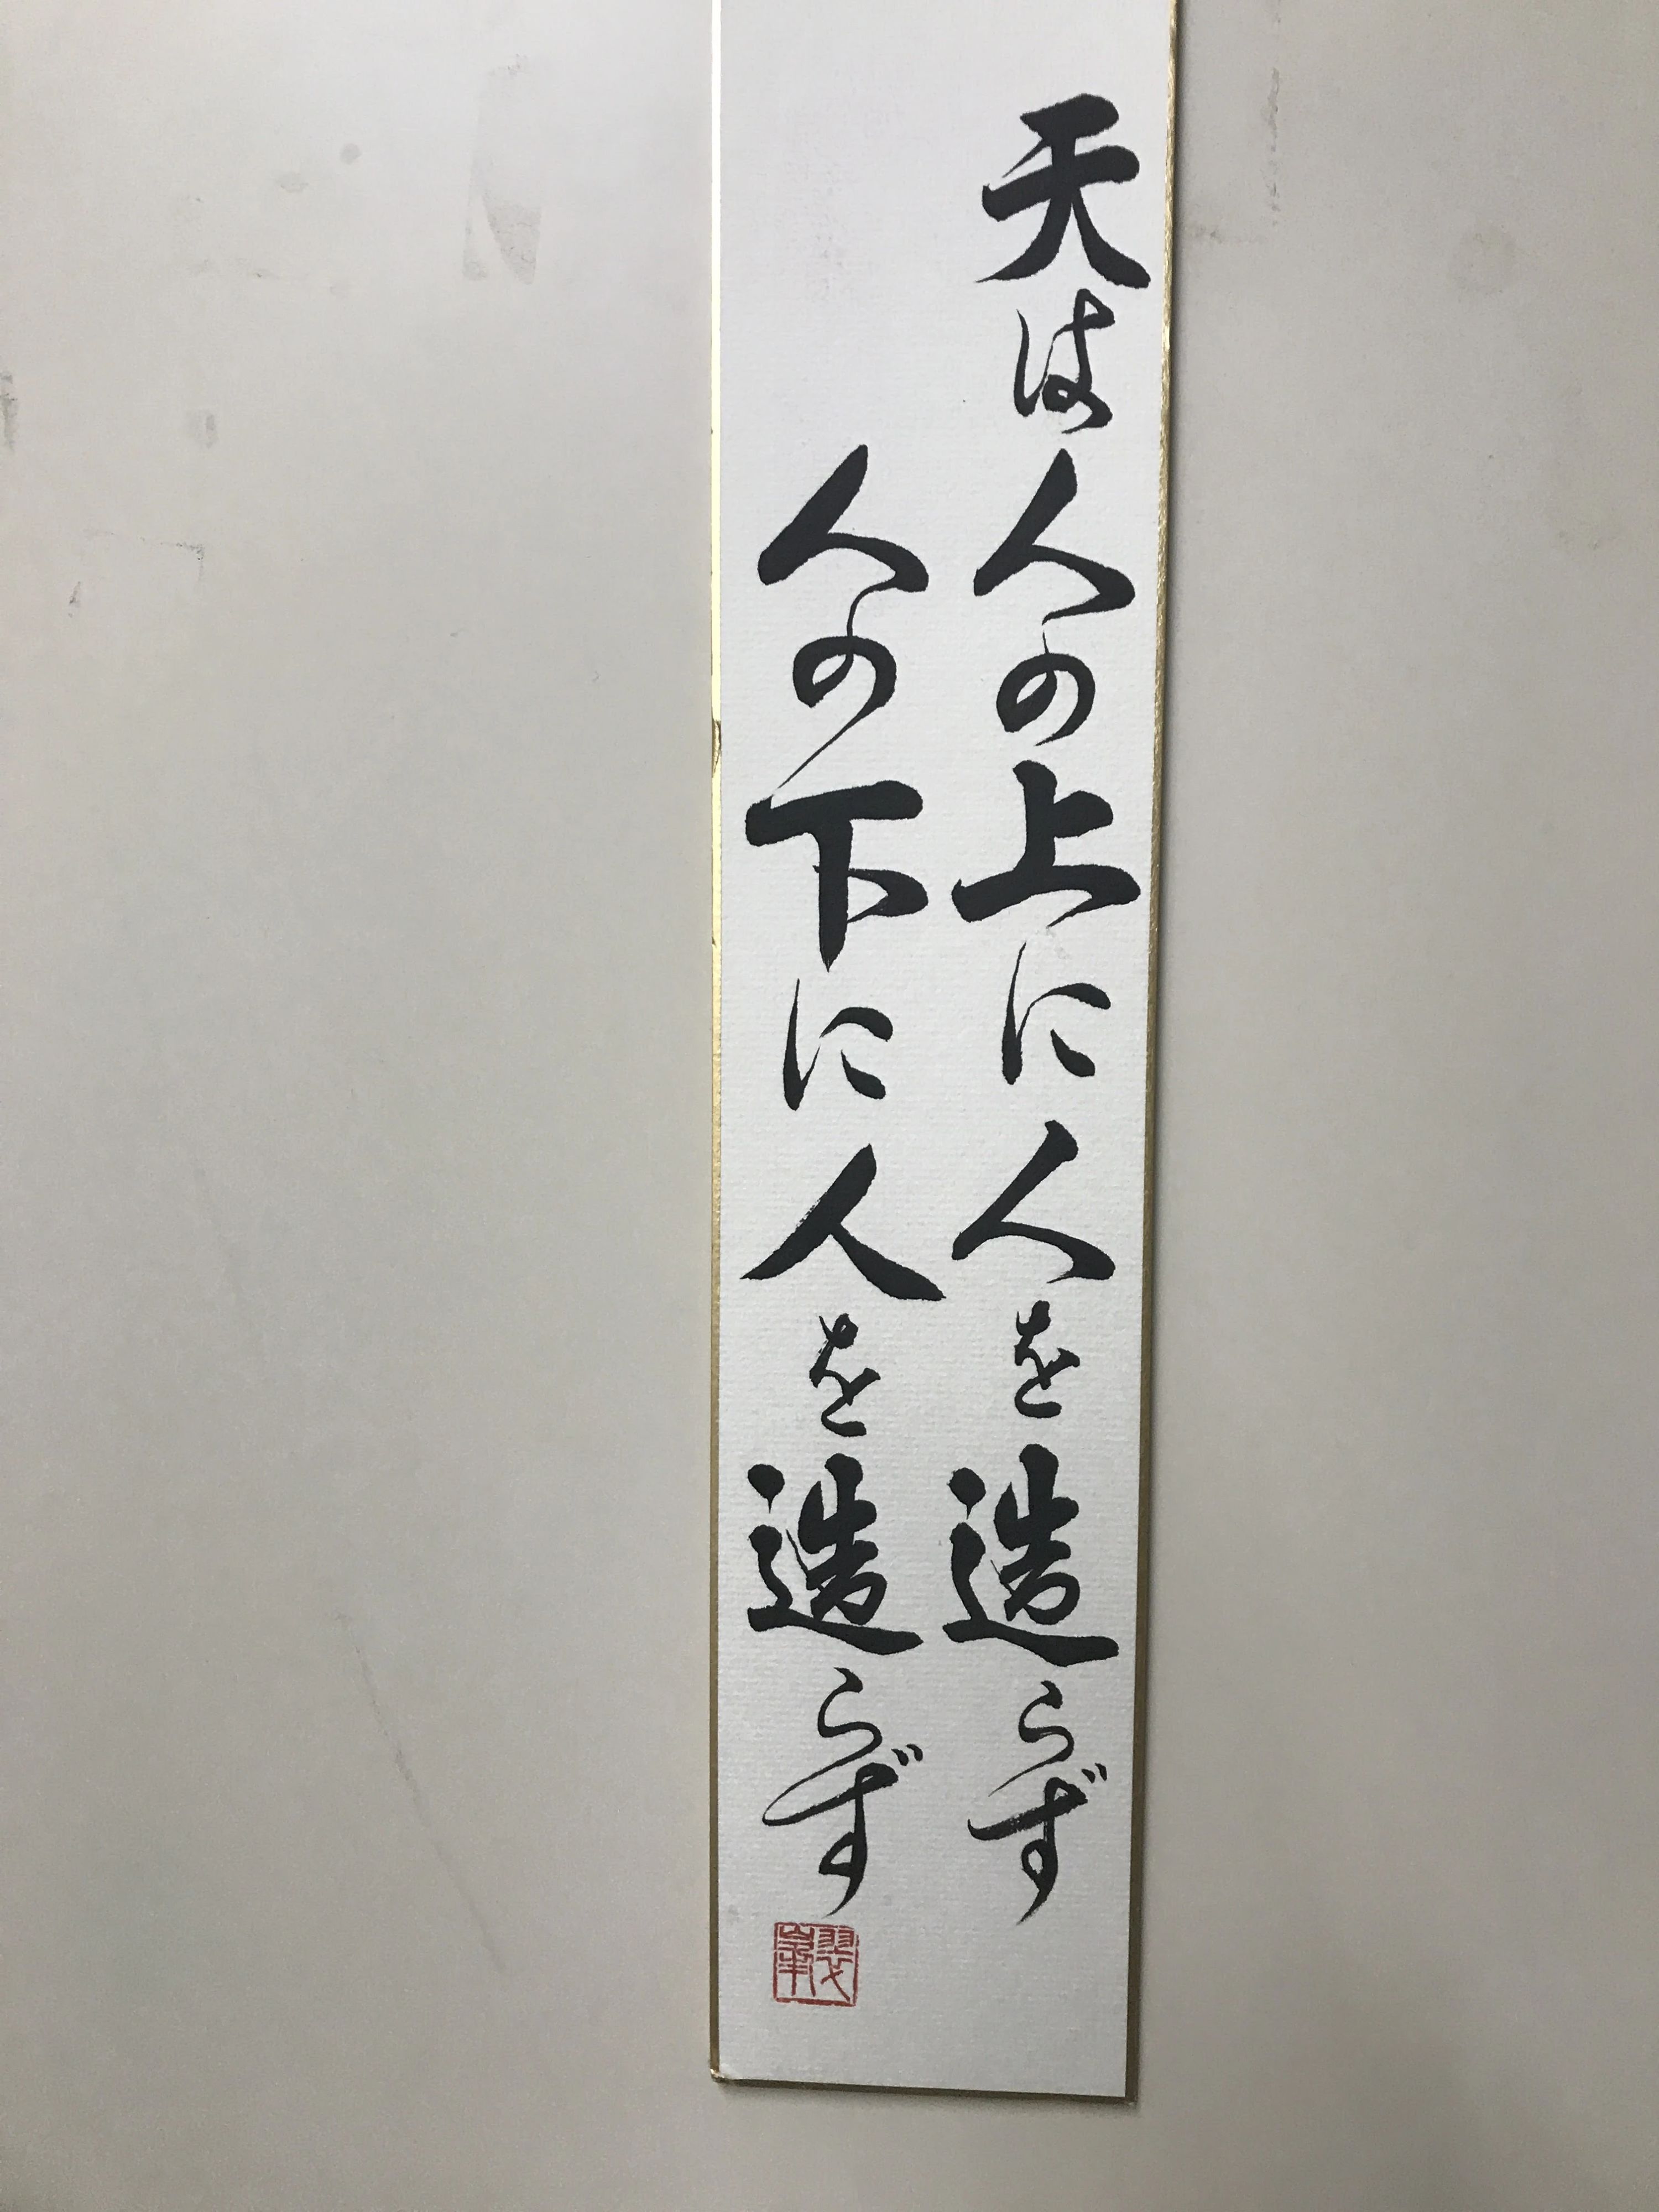 天は人の上に人を造らず
人の下に人を造らず